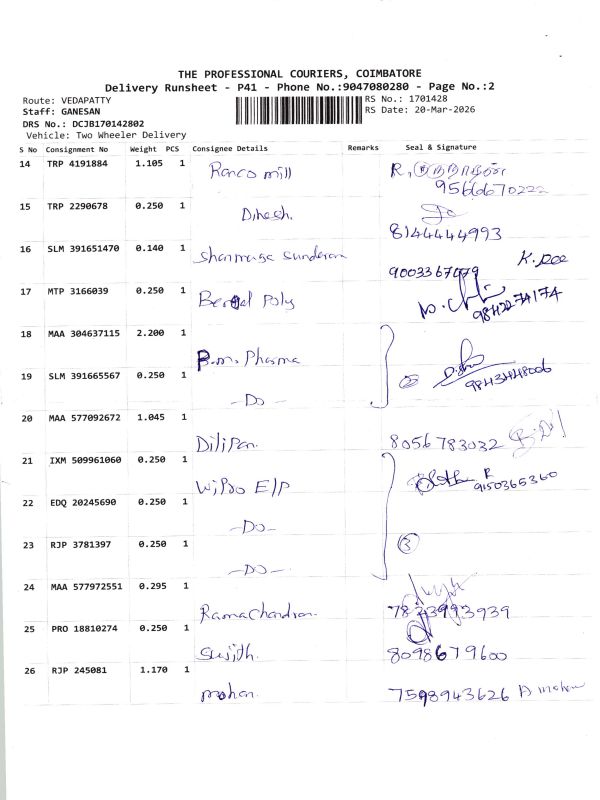 THE PROFESSIONAL COURIERS, COIMBATORE
Delivery Runsheet - P41 - Phone No.:9047080280 - Page No.:2
Route: VEDAPATTY
RS No.: 1701428
Staff: GANESAN
RS Date: 20-Mar-2026
DRS No.: DCJB170142802
Vehicle: Two Wheeler Delivery
S No Consignment No Weight PCS Consignee Details Remarks Seal & Signature
14 TRP 4191884 1.105 1 Ranco mill R,
9566670222
15 TRP 2290678 0.250 1 Dinesh.
8144444993
16 SLM 391651470 0.140 1 Shanmuga Sundaram
9003367079
17 MTP 3166039 0.250 1 Bengal Poly
9842274174
18 MAA 304637115 2.200 1 B.m. Pharma
19 SLM 391665567 0.250 1 -Do- 2
9843448006
20 MAA 577092672 1.045 1 Dilipan. 8056783032
21 IXM 509961060 0.250 1 Wipro E/P
9150365360
22 EDQ 20245690 0.250 1 -Do-
23 RJP 3781397 0.250 1 -Do- 3
24 MAA 577972551 0.295 1 Ramachandran.
25 PRO 18810274 0.250 1 Sujith. 8098679600
26 RJP 245081 1.170 1 mohan. 7598943626 A mohan